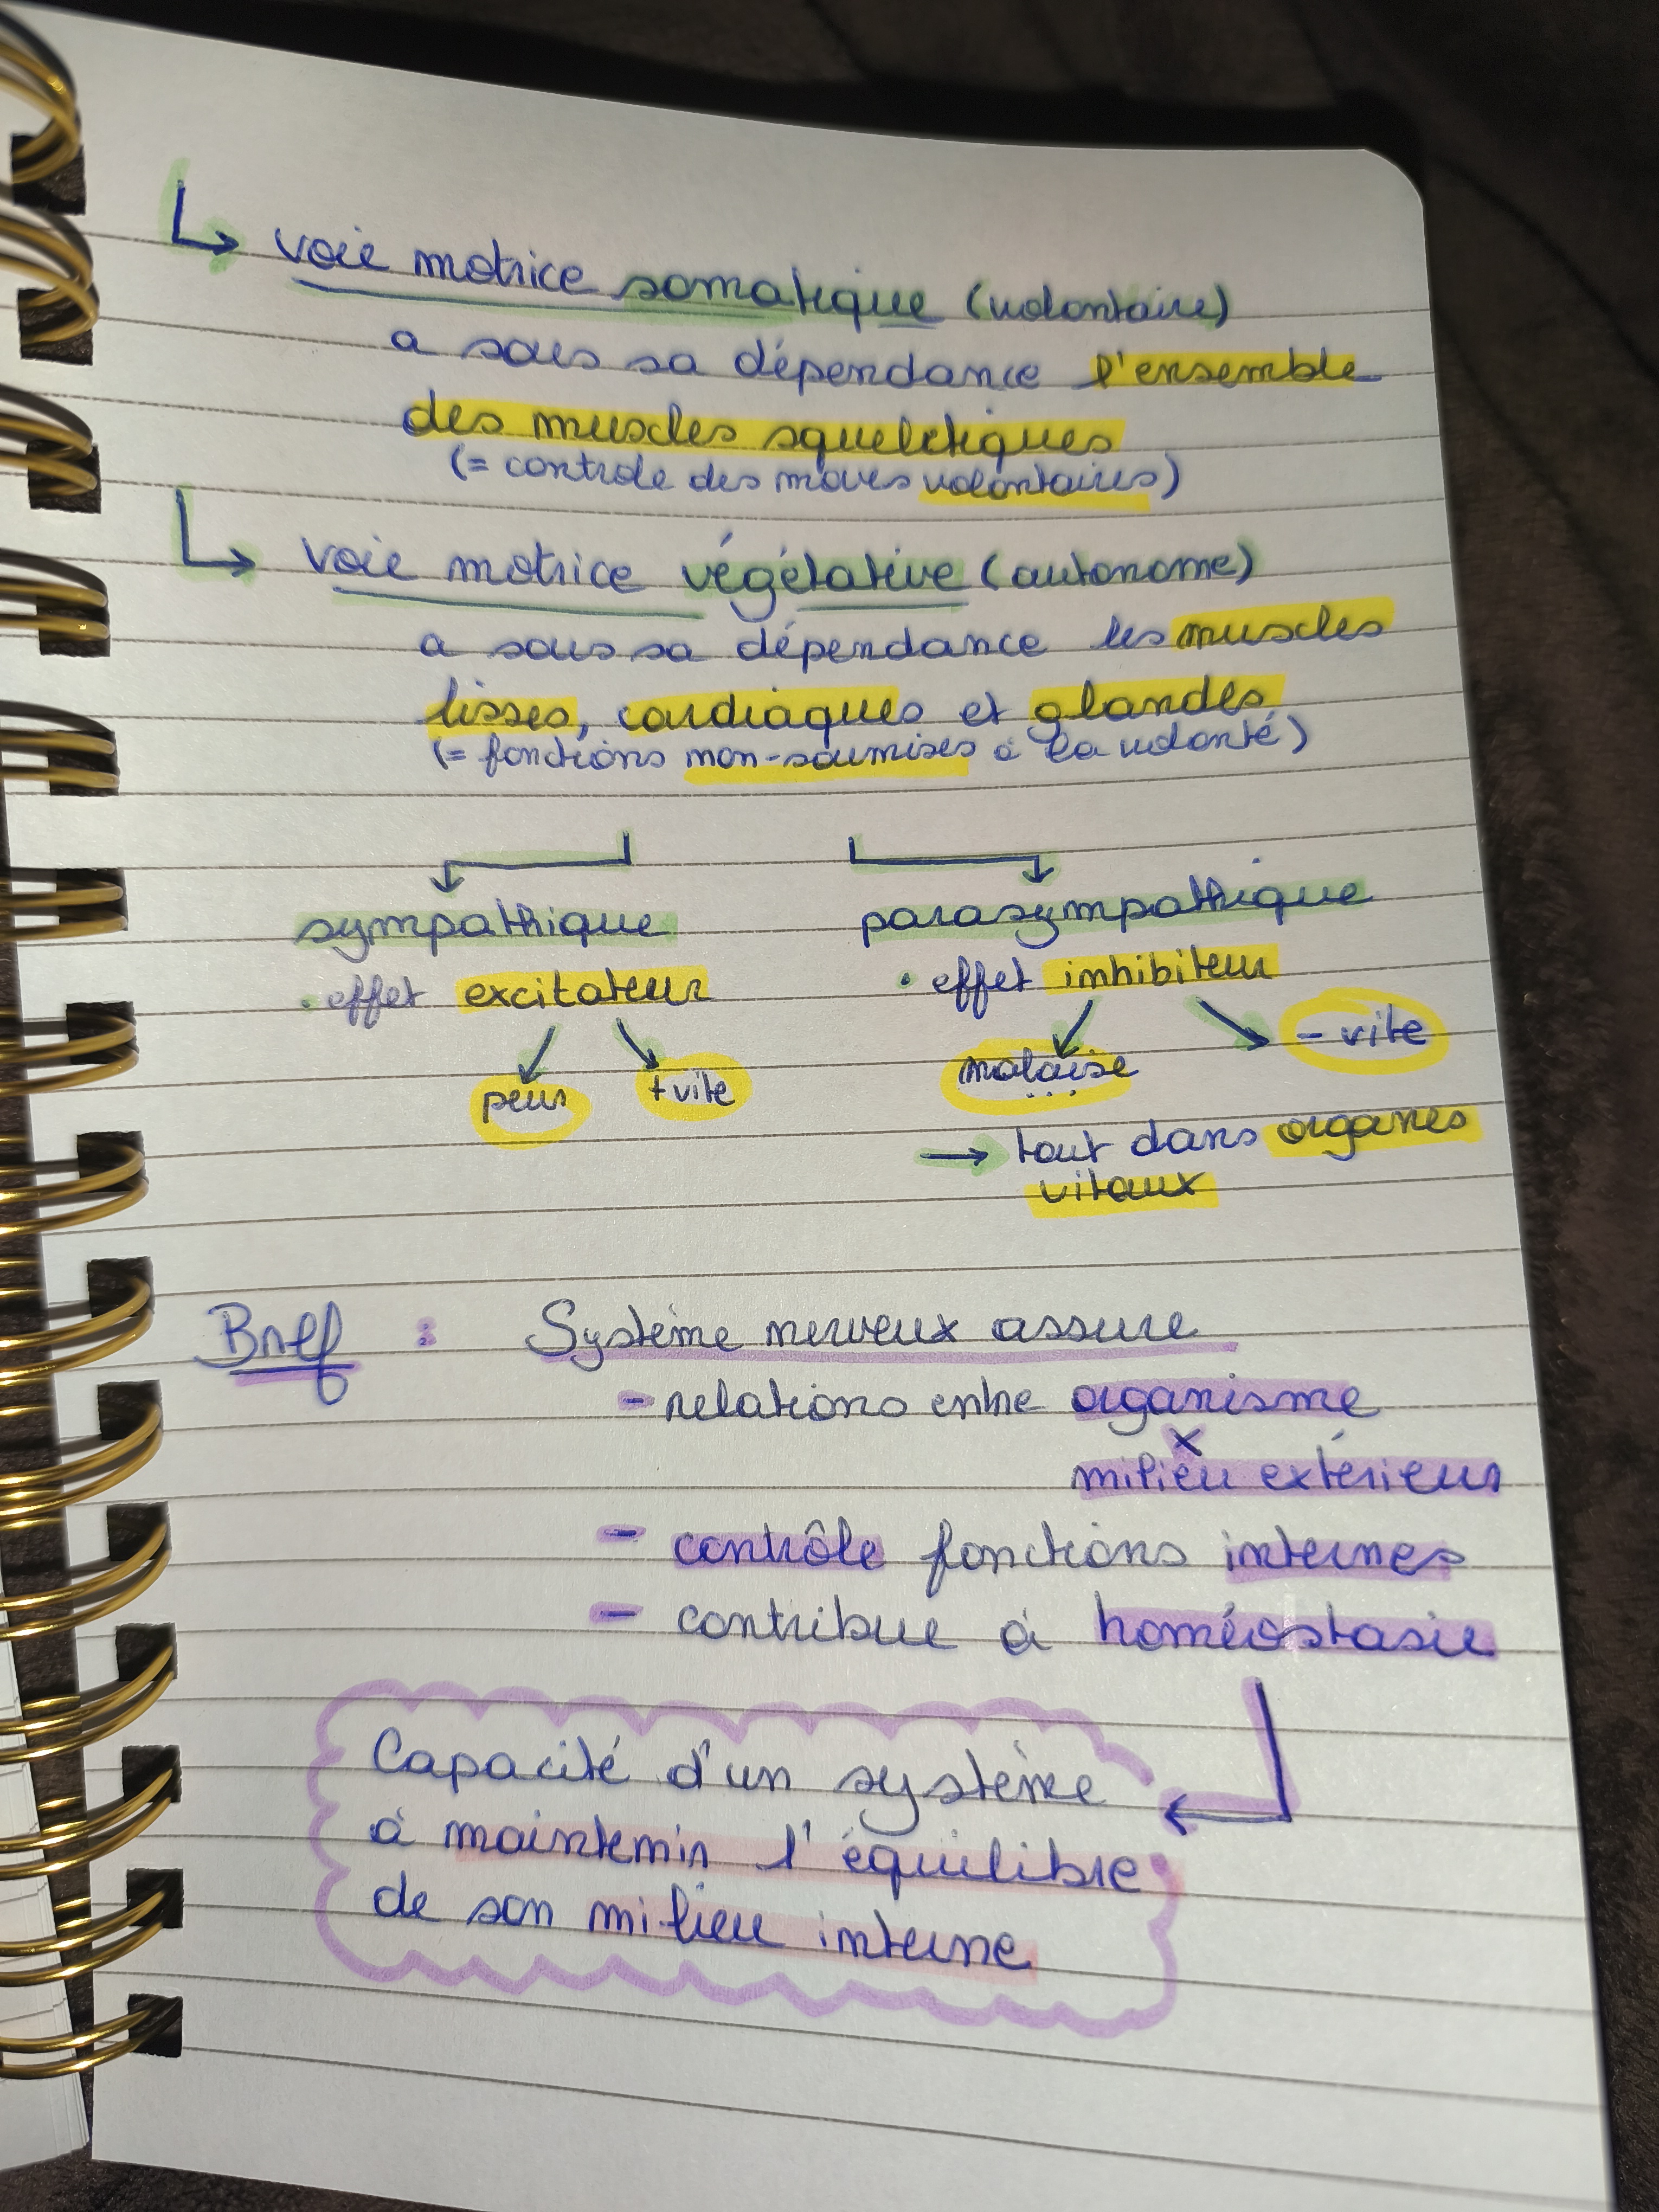 ↳ voie motrice somatique (volontaire)
a sous sa dépendance l'ensemble
des muscles squelettiques
(= controle des mouvs volontaires)
↳ voie motrice végétative (autonome)
a sous sa dépendance les muscles
lisses, cardiaques et glandes
(= fonctions non-soumises à la volonté)
sympathique
• effet excitateur
peur
+ vite
parasympathique
• effet inhibiteur
malaise
...
- vite
→ tout dans organes
vitaux
Bref : Système nerveux assure
- relations entre organisme
x
milieu extérieur
- contrôle fonctions internes
- contribue à homéostasie
Capacité d'un système
à maintenir l'équilibre
de son milieu interne